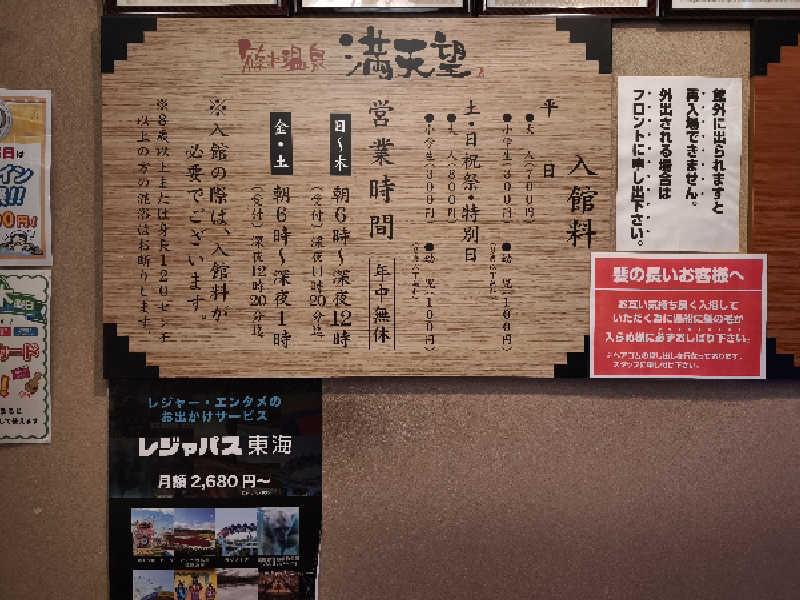 榊原温泉 満天望
入館料
平日
●大人(700円)
●小学生(300円)
●幼児(100円)
土・日祝祭・特別日
●大人(800円)
●小学生(300円)
●幼児(100円)
営業時間
年中無休
日～木 朝6時～深夜12時
(受付)深夜11時20分迄
金・土 朝6時～深夜1時
(受付)深夜12時20分迄
※入館の際は、入館料が
必要でございます。
※8歳以上または身長120センチ
以上の方の混浴はお断りします
館外に出られますと
再入場できません。
外出される場合は
フロントに申し出下さい。
髪の長いお客様へ
お互い気持ち良く入浴して
いただく為に湯船に髪の毛が
入らぬ様に必ずおしばり下さい。
※ヘアゴムの貸し出しを行なっております。
スタッフに申し付け下さい。
レジャー・エンタメの
お出かけサービス
レジャパス東海
月額2,680円～